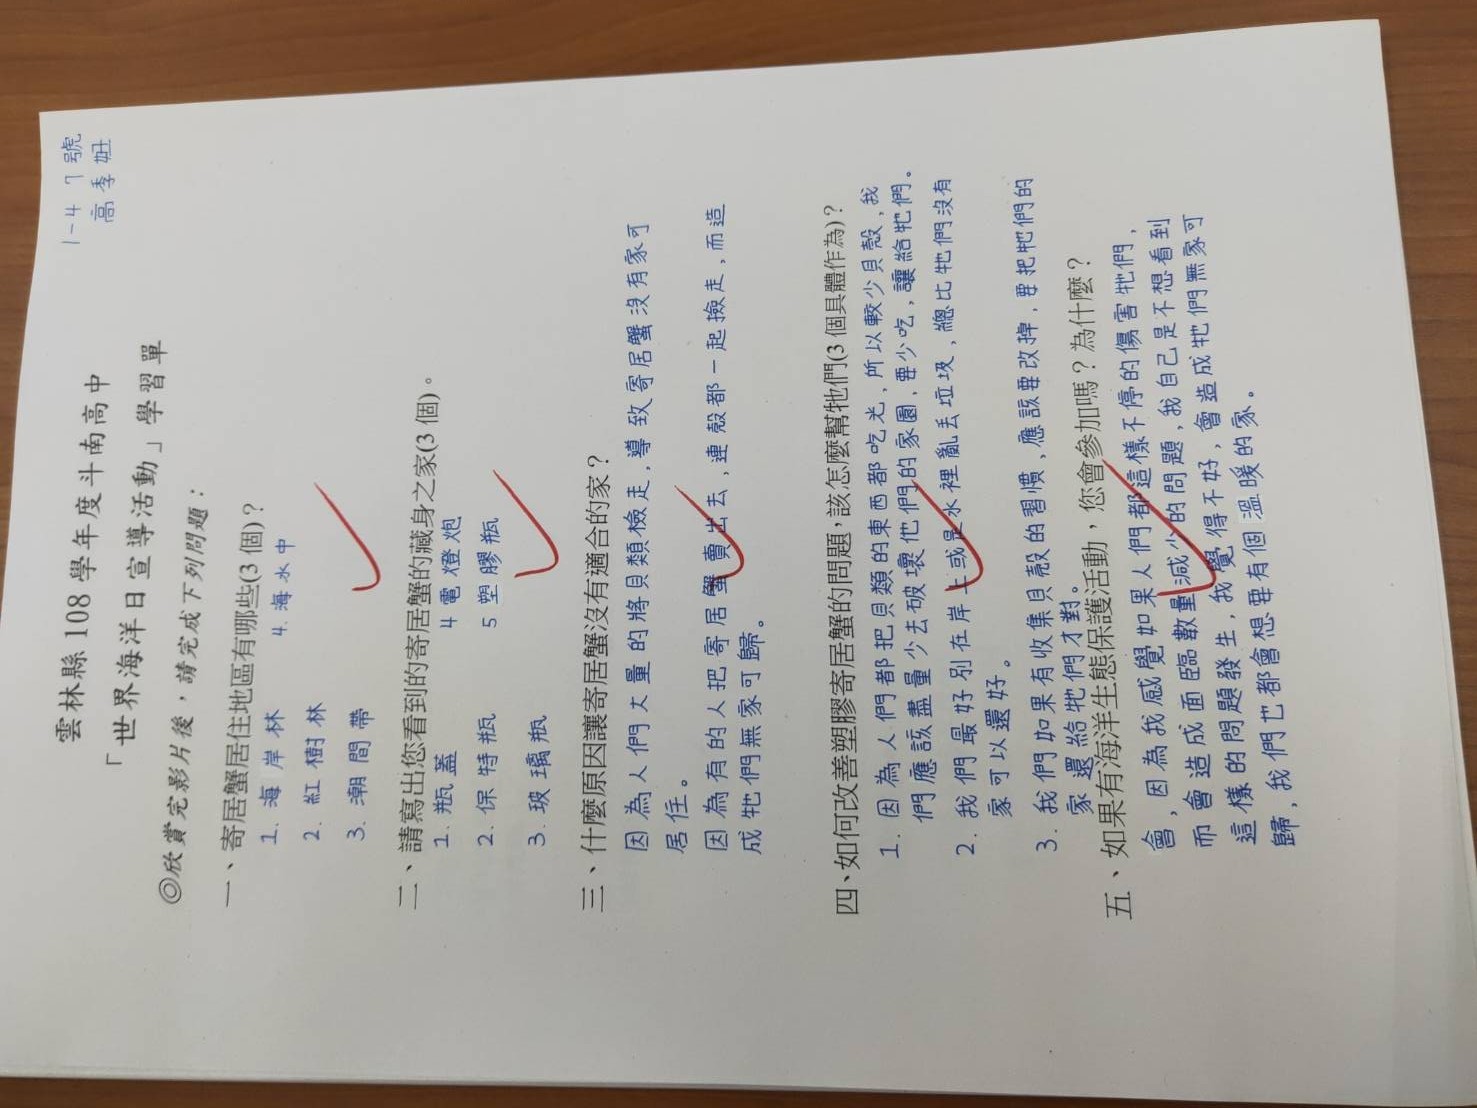 1-4 7號
高季妞
雲林縣108學年度斗南高中
「世界海洋日宣導活動」學習單
◎欣賞完影片後，請完成下列問題：
一、寄居蟹居住地區有哪些(3個)？
1. 海岸林 4. 海水中
2. 紅樹林
3. 潮間帶
二、請寫出您看到的寄居蟹的藏身之家(3個)。
1. 瓶蓋 4 電燈炮
2. 保特瓶 5 塑膠瓶
3. 玻璃瓶
三、什麼原因讓寄居蟹沒有適合的家？
因為人們大量的將貝類檢走,導致寄居蟹沒有家可
居住。
因為有的人把寄居蟹賣出去,連殼都一起撿走,而造
成牠們無家可歸。
四、如何改善塑膠寄居蟹的問題,該怎麼幫牠們(3個具體作為)?
1. 因為人們都把貝類的東西都吃光,所以較少貝殼,我
們應該盡量少去破壞他們的家園,要少吃,讓給牠們。
2. 我們最好別在岸上或是水裡亂丟垃圾,總比牠們沒有
家可以還好。
3. 我們如果有收集貝殼的習慣,應該要改掉,要把牠們的
家還給牠們才對。
五、如果有海洋生態保護活動，您會參加嗎？為什麼？
會,因為我感覺如果人們都這樣不停的傷害牠們,
而會造成面臨數量減少的問題,我自己是不想看到
這樣的問題發生,我覺得不好,會造成牠們無家可
歸,我們也都會想要有個溫暖的家。